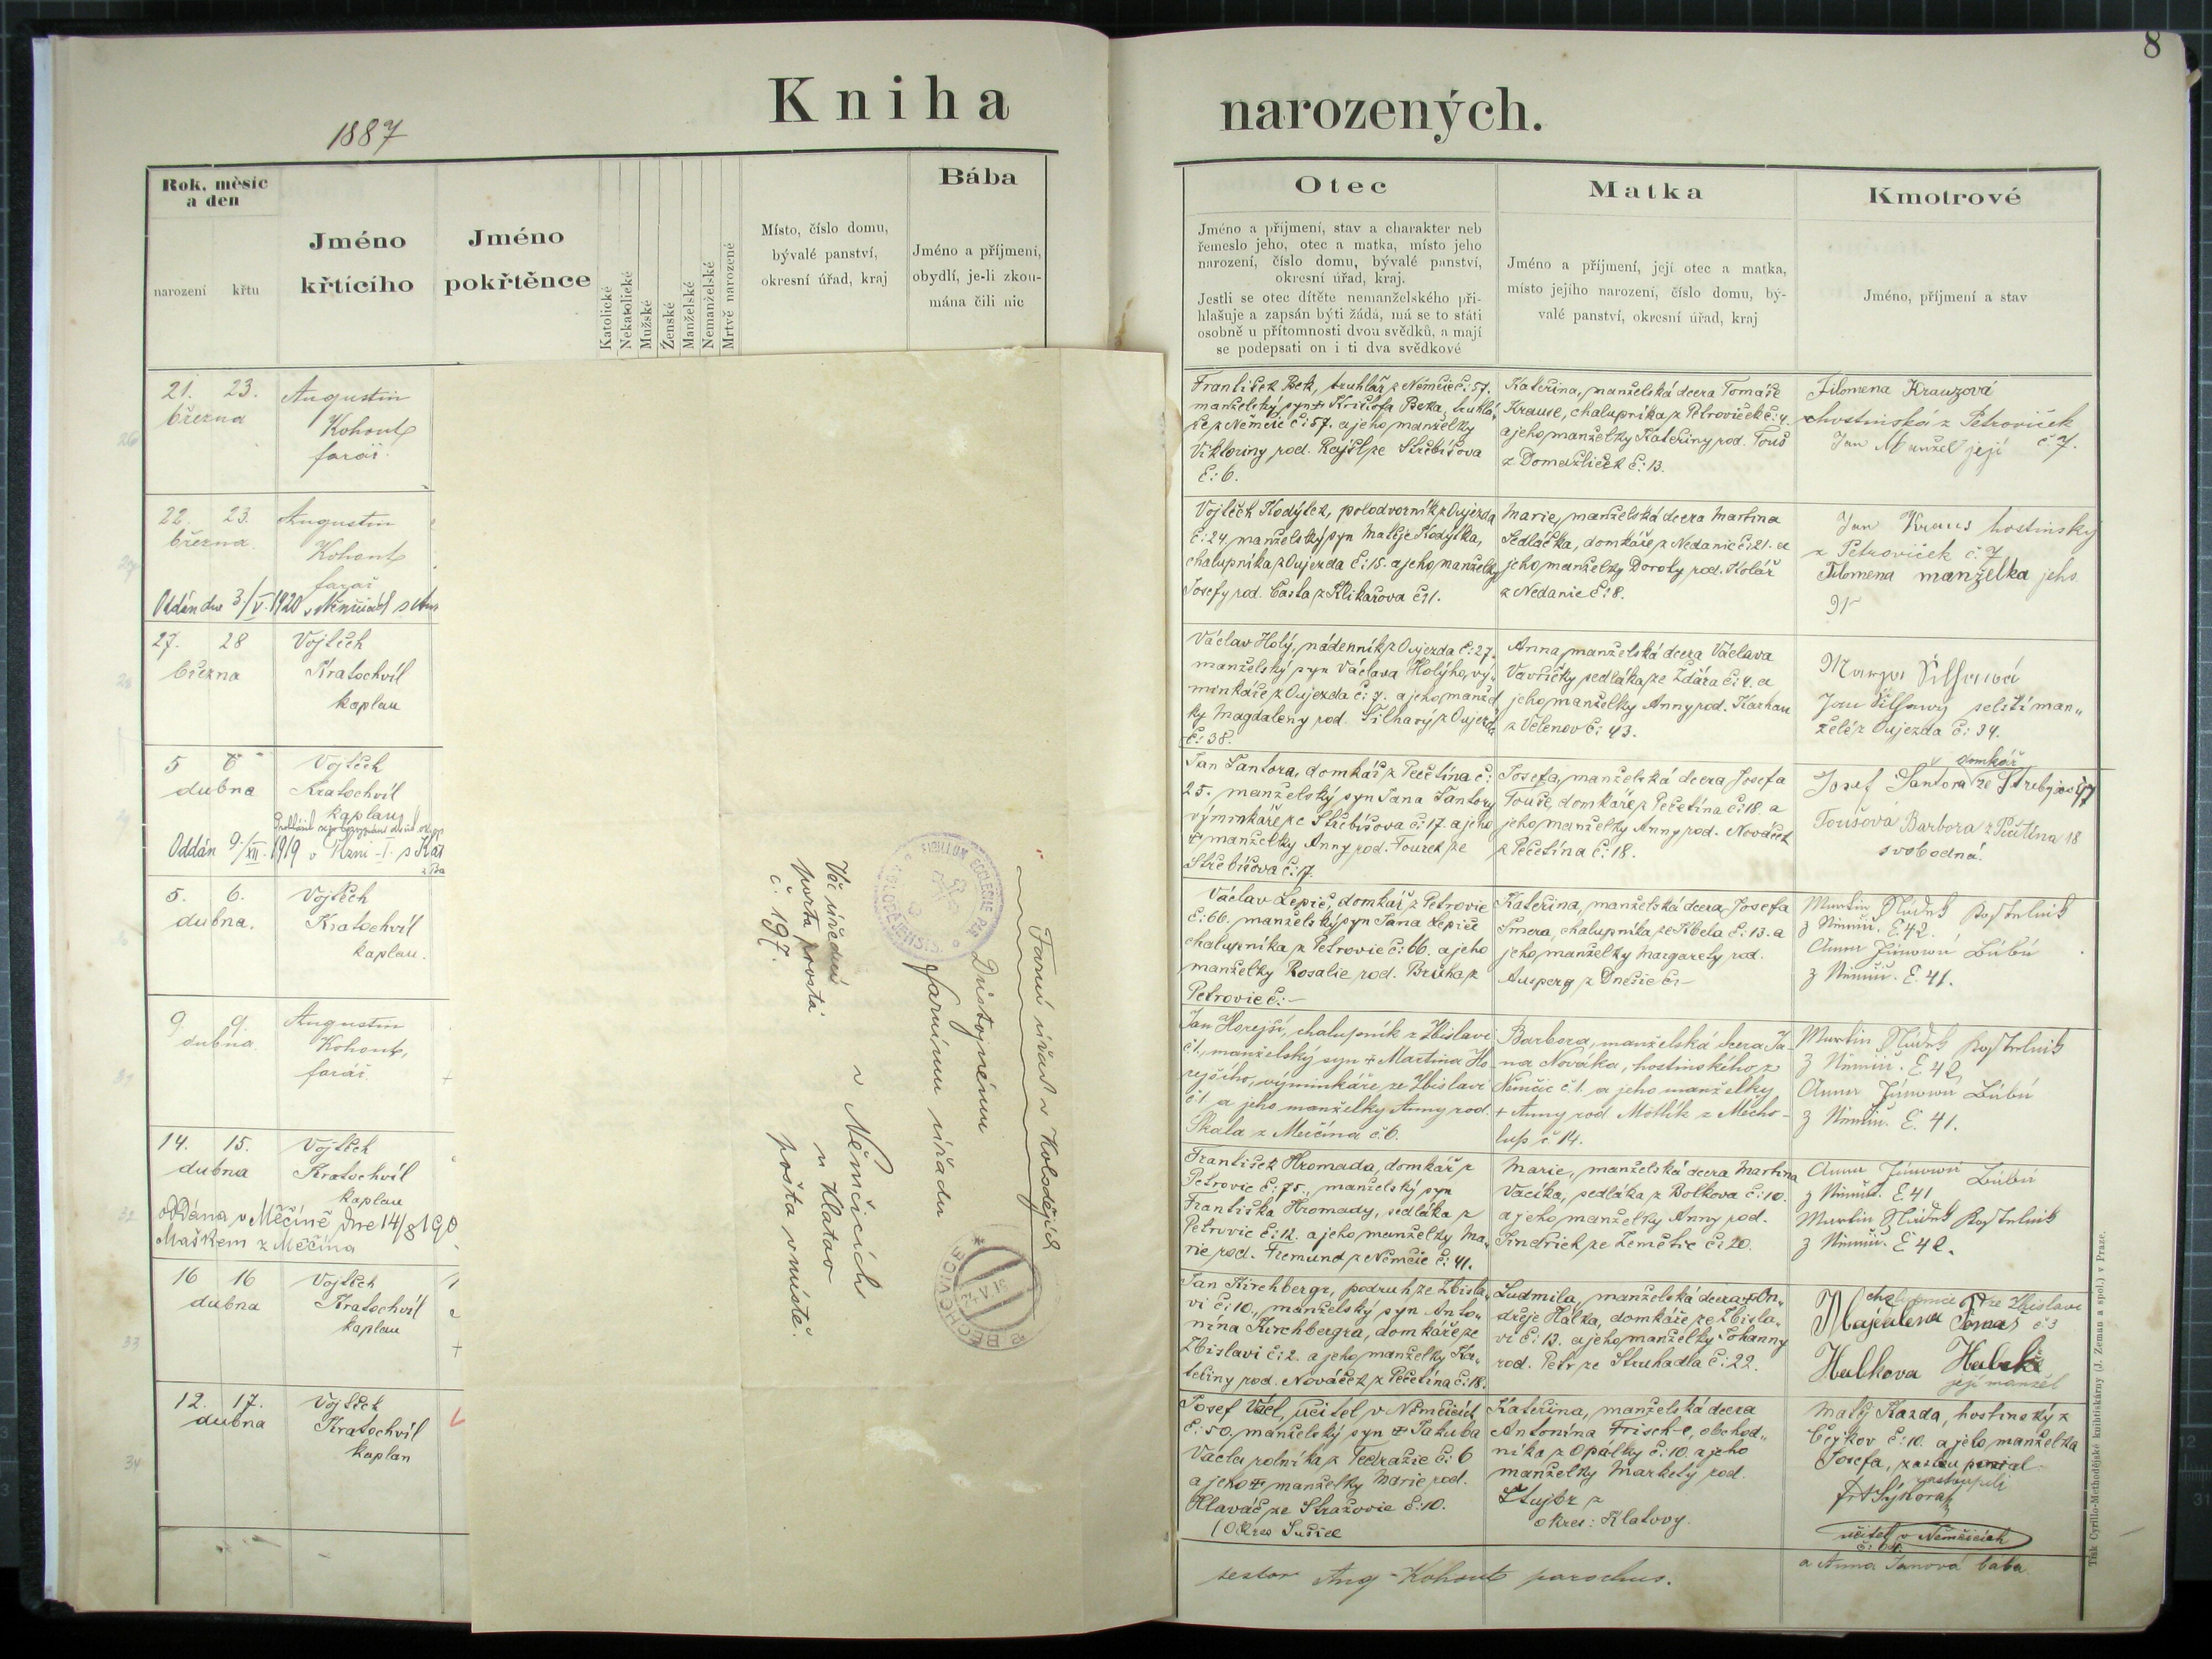 8
Kniha
narozených.
1887
Rok, měsíc
a den
narození
křtu
Jméno
křtícího
Jméno
pokřtěnce
Katolické
Nekatolické
Mužské
Ženské
Manželské
Nemanželské
Mrtvě narozené
Místo, číslo domu,
bývalé panství,
okresní úřad, kraj
Bába
Jméno a příjmení,
obydlí, je-li zkou-
mána čili nic
Otec
Jméno a příjmení, stav a charakter neb
řemeslo jeho, otec a matka, místo jeho
narození, číslo domu, bývalé panství,
okresní úřad, kraj.
Jestli se otec dítěte nemanželského při-
hlašuje a zapsán býti žádá, má se to státi
osobně u přítomnosti dvou svědků, a mají
se podepsati on i ti dva svědkové
Matka
Jméno a příjmení, její otec a matka,
místo jejího narození, číslo domu, bý-
valé panství, okresní úřad, kraj
Kmotrové
Jméno, příjmení a stav
21. 23.
března
Augustin
Kohout
farář.
František Bek, truhlář z Němčic č: 57.
manželský syn + Krištofa Beka, truhlá-
ře z Němčic č: 57. a jeho manželky
Viktoriny rod. ze Střebišova
č: 6.
Kateřina, manželská dcera Tomáše
Krause, chalupníka z Petroviček č: 4.
a jeho manželky Kateřiny rod. Touš
z Domažliček č: 13.
Filomena Krauzová
hostinská z Petroviček
Jan Manžel její č 7.
22. 23.
března
Augustin
Kohout
farář
Oddán dne 3./V. 1920 v Němčicích s
Vojtěch Kodýtek, polodvorník z Oujezda
č: 24. manželský syn Matěje Kodýtka,
chalupníka z Oujezda č: 15. a jeho manželky
Josefy rod. Casta z Klikařova č: 1.
Marie, manželská dcera Martina
Sedláčka, domkáře z Nedanic č: 21. a
jeho manželky Doroty rod. Kolář
z Nedanic č: 8.
Jan Kraus hostinsky
z Petroviček č. 7
Filomena manželka jeho
27. 28
března
Vojtěch
Kratochvíl
kaplan
Václav Holý, nádenník z Oujezda č: 27.
manželský syn Václava Holýho, vý-
minkáře z Oujezda č: 7. a jeho manžel
ky Magdaleny rod. Šilhavý z Oujezda
č: 38.
Anna, manželská dcera Václava
Vavřičky sedláka ze Ždára č: 4. a
jeho manželky Anny rod. Karhan
z Velenov č: 43.
Marya Šilhavá
Jan Šilhavy selští man„
želé z Oujezda č: 34.
5 6
dubna
Vojtěch
Kratochvíl
kaplan
Oddán 9./XII. 1919 v Plzni-I. s Kat
Jan Šantora, domkář z Pečetína č:
25. manželský syn Jana Šantory
výminkáře ze Střebišova č: 17. a jeho
manželky Anny rod. Tourek ze
Střebišova č: 17
Josefa, manželská dcera Josefa
Touše, domkáře z Pečetína č: 18. a
jeho manželky Anny rod. Nováček
z Pečetína č: 18.
domkář
Josef Šantora ze Střebyšova 17
Toušova Barbora z Pečetína 18
svobodná.
5. 6.
dubna.
Vojtěch
Kratochvíl
kaplan.
Václav Lepič, domkář z Petrovic
č: 66. manželský syn Jana Lepiče
chalupníka z Petrovic č: 66. a jeho
manželky Rosalie rod. Brůha z
Petrovic č: –
Kateřina, manželská dcera Josefa
Šmera, chalupníka ze Kbela č: 13. a
jeho manželky Margarety rod.
Ausperg z Dnešic č: –
Martin
z Němčic. č. 42.
Anna Janowa Baba
z Němčic. č. 41.
9. 9.
dubna.
Augustin
Kohout,
farář.
Jan Horejší, chalupník z Zbislavi
č 1., manželský syn + Martina Ho
rejšího, výminkáře ze Zbislavi
č. 1 a jeho manželky Anny rod.
Skala z Mečína č. 6.
Barbora, manželská dcera Ja-
na Nováka, hostinského z
Němčic č. 1 a jeho manželky
+ Anny rod Motlík z Mecho-
lup č 14.
Martin
z Němčic. č 42
Anna Janowa Baba
z Němčic. č. 41.
14. 15.
dubna
Vojtěch
Kratochvíl
kaplan
oddána v Měčíně dne 14/8 190
Maškem z Měčína
František Hromada, domkář z
Petrovic č: 75., manželský syn
Františka Hromady, sedláka z
Petrovic č: 12. a jeho manželky Ma„
rie rod. Fremund z Němčic č: 41.
Marie, manželská dcera Martina
Vacíka, sedláka z Bolkova č: 10.
a jeho manželky Anny rod.
Jindřich ze Zemětic č: 20.
Anna Janowa Baba
z Němčic. č 41
Martin
z Němčic. č 42.
16 16
dubna
Vojtěch
Kratochvíl
kaplan
Jan Kirchbergr, podruh ze Zbisla„
vi č: 10., manželský syn Anto„
nína Kirchbergra, domkáře ze
Zbislavi č: 2. a jeho manželky Ka„
teřiny rod. Nováček z Pečetína č: 18.
Ludmila, manželská dcera + On„
dřeje Hálka, domkáře ze Zbisla„
vi č: 13. a jeho manželky Johanny
rod. Petr ze Struhadla č: 22.
chalupnice ze Zbislavi
Majdalena Tomaš č 3
Halkova
její manžel
12. 17.
dubna
Vojtěch
Kratochvíl
kaplan
Josef Vacl, učitel v Němčicích
č: 50, manželský syn + Jakuba
Vacla rolníka z Tedražic č: 6
a jeho + manželky Marie rod.
Hlaváč ze Stražovic č: 10.
Okres Sušice
Kateřina, manželská dcera
Antonína Frisch-e, obchod„
níka z Opálky č: 10. a jeho
manželky Markety rod.
z
okres: Klatovy.
Matěj Kazda, hostinský z
Čejkov č: 10. a jeho manželka
Josefa,
zastoupeli
Frt Sýkora
učitel v Němčicích
a Anna Janová baba
testor Aug. Kohout parochus.
Farní úřad v Koloděјích
Důstojnému
farnímu úřadu
v Němčicích
u Klatov
pošta v místě.
Věc úřední
porta prostá
č. 197.
BĚCHOVICE
Tisk Cyrillo-Methodějské knihtiskárny (J. Zeman a spol.) v Praze.